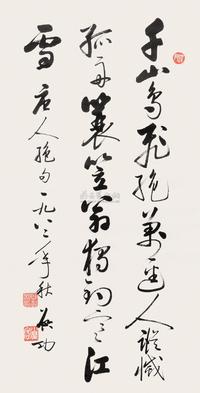 千山鳥飛絕萬逕人蹤滅
孤舟簑笠翁獨釣寒江
雪 唐人絕句 一九八二年秋 啟功